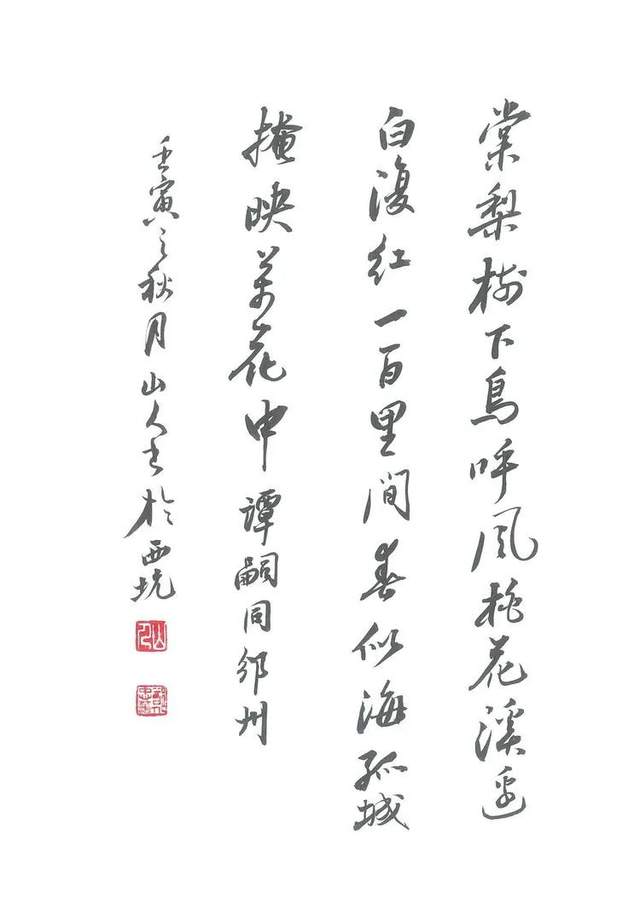 棠梨樹下鳥呼風桃花溪邊
白復紅一百里間春似海孤城
掩映萬花中 譚嗣同邠州
壬寅之秋月山人書於西坑
山人